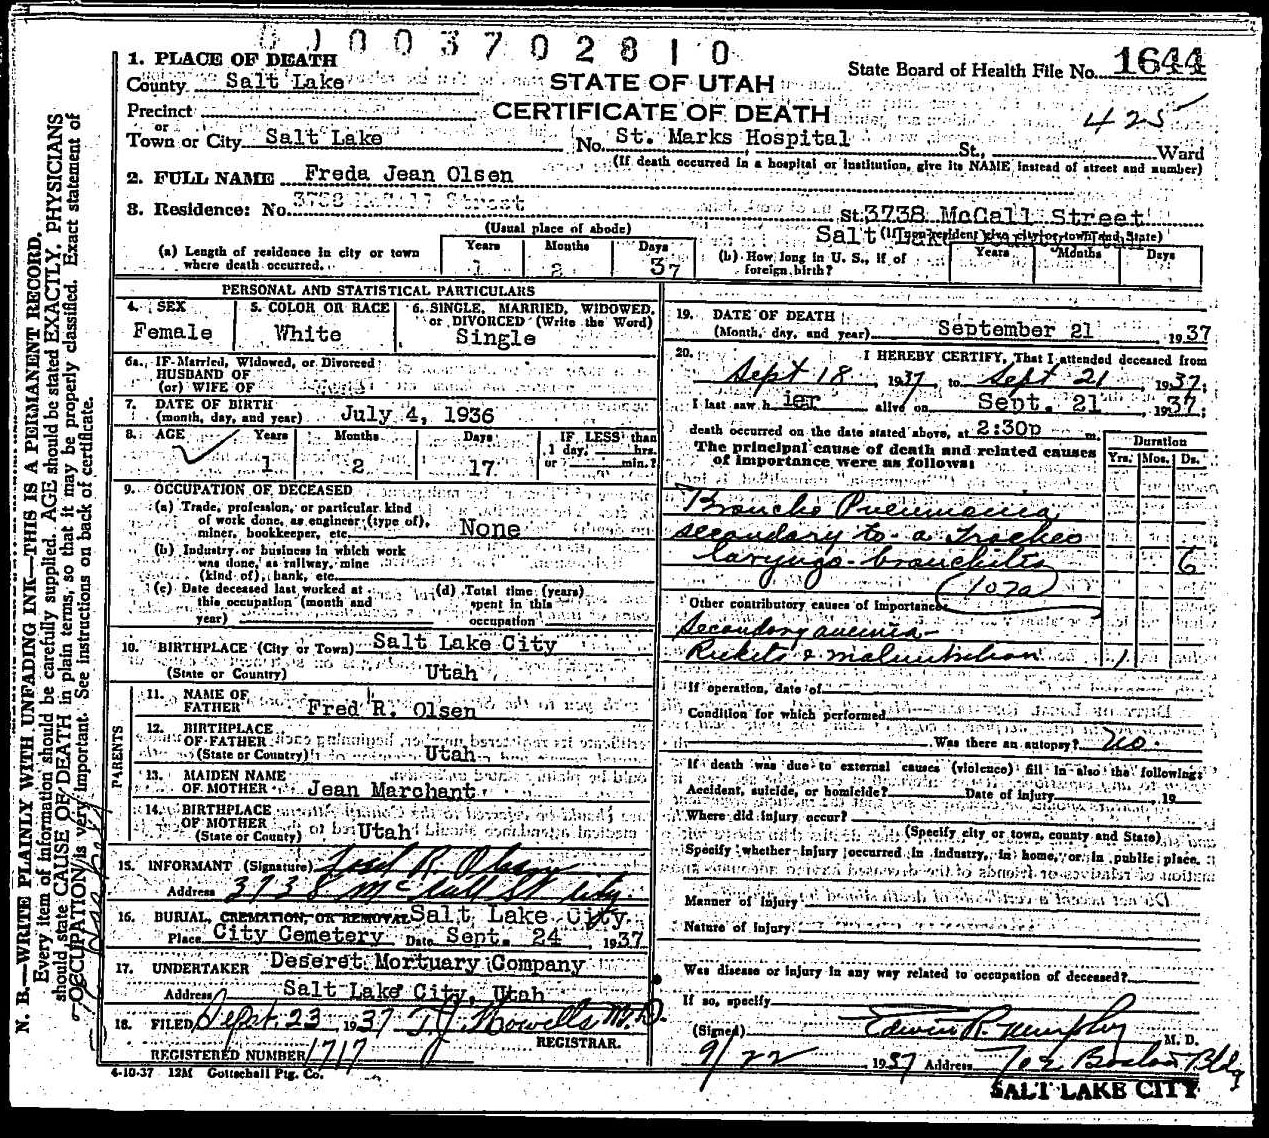 01003702810
1. PLACE OF DEATH
County Salt Lake
STATE OF UTAH
State Board of Health File No. 1644
Precinct
CERTIFICATE OF DEATH
425
or
Town or City Salt Lake No. St. Marks Hospital St., Ward
(If death occurred in a hospital or institution, give its NAME instead of street and number)
2. FULL NAME Freda Jean Olsen
3. Residence: No. 3738 McCall Street St. 3738 McCall Street
(Usual place of abode)
Salt Lake (If non-resident give city or town and State)
(a) Length of residence in city or town where death occurred. Years 1 Months 2 Days 37
(b) How long in U. S., if of foreign birth? Years Months Days
PERSONAL AND STATISTICAL PARTICULARS
4. SEX Female
5. COLOR OR RACE White
6. SINGLE, MARRIED, WIDOWED, or DIVORCED (Write the Word) Single
6a. IF Married, Widowed, or Divorced
HUSBAND OF
(or) WIFE OF
7. DATE OF BIRTH
(month, day, and year) July 4, 1936
8. AGE Years 1 Months 2 Days 17 IF LESS than 1 day, hrs. or min.?
9. OCCUPATION OF DECEASED
(a) Trade, profession, or particular kind
of work done, as engineer (type of),
miner, bookkeeper, etc. None
(b) Industry or business in which work
was done, as railway, mine
(kind of), bank, etc.
(c) Date deceased last worked at
this occupation (month and
year)
(d) Total time (years)
spent in this
occupation
10. BIRTHPLACE (City or Town) Salt Lake City
(State or Country) Utah
PARENTS
11. NAME OF
FATHER Fred R. Olsen
12. BIRTHPLACE
OF FATHER
(State or Country) Utah
13. MAIDEN NAME
OF MOTHER Jean Marchant
14. BIRTHPLACE
OF MOTHER
(State or Country) Utah
15. INFORMANT (Signature) Fred R. Olsen
Address 3738 McCall St City.
16. BURIAL, CREMATION, OR REMOVAL Salt Lake City
Place City Cemetery Date Sept. 24 1937
17. UNDERTAKER Deseret Mortuary Company
Address Salt Lake City, Utah
18. FILED Sept. 23 1937 T. J. Howells M.D.
REGISTRAR.
REGISTERED NUMBER 1717
4-10-37 12M Gottschall Ptg. Co.
19. DATE OF DEATH
(Month, day, and year) September 21 1937
20. I HEREBY CERTIFY, That I attended deceased from
Sept 18, 1937, to Sept 21, 1937;
I last saw h ier alive on Sept. 21, 1937;
death occurred on the date stated above, at 2:30p m.
The principal cause of death and related causes
of importance were as follows:
Duration
Yrs. Mos. Ds.
Broncho Pneumonia
secondary to a Tracheo
laryngo-bronchitis 6
(107a)
Other contributory causes of importance:
Secondary anemia-
Rickets & malnutrition 1
If operation, date of
Condition for which performed
Was there an autopsy? no.
If death was due to external causes (violence) fill in also the following:
Accident, suicide, or homicide? Date of injury , 19
Where did injury occur?
(Specify city or town, county and State)
Specify whether injury occurred in industry, in home, or in public place.
Manner of injury
Nature of injury
Was disease or injury in any way related to occupation of deceased?
If so, specify
(Signed) Edwin R. Murphy M. D.
9/22 1937 Address 702 Boston Bldg
SALT LAKE CITY
N. B.—WRITE PLAINLY WITH UNFADING INK—THIS IS A PERMANENT RECORD.
Every item of information should be carefully supplied. AGE should be stated EXACTLY. PHYSICIANS
should state CAUSE OF DEATH in plain terms, so that it may be properly classified. Exact statement of
OCCUPATION is very important. See instructions on back of certificate.